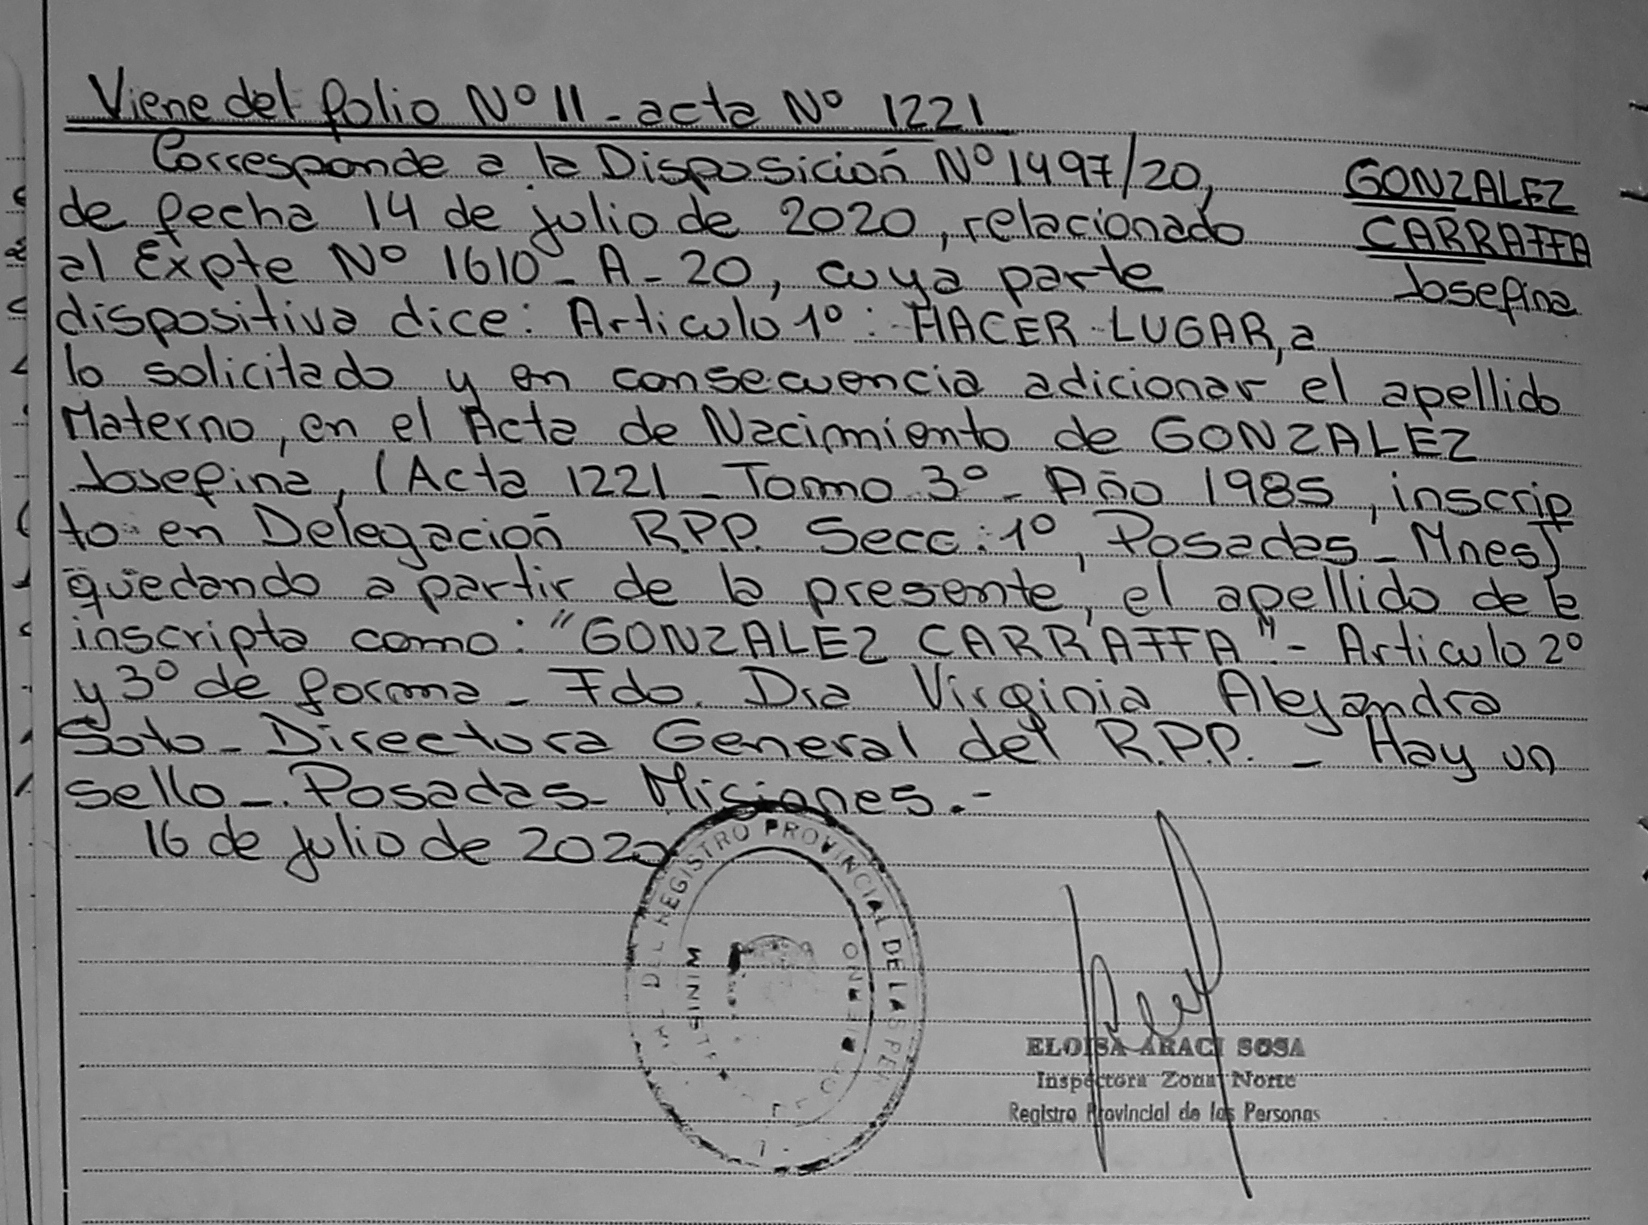 Viene del folio Nº 11 - acta Nº 1221
Corresponde a la Disposición Nº 1497/20,
de fecha 14 de julio de 2020, relacionado
al Expte Nº 1610 - A - 20, cuya parte
dispositiva dice: Articulo 1º: HACER LUGAR, a
lo solicitado y en consecuencia adicionar el apellido
Materno, en el Acta de Nacimiento de GONZALEZ
Josefina, (Acta 1221 - Tomo 3º - Año 1985, inscrip
to en Delegación R.P.P. Secc: 1º, Posadas - Mnes)
quedando a partir de la presente, el apellido de la
inscripta como: "GONZALEZ CARRAFFA" - Articulo 2º
y 3º de forma - Fdo. Dra Virginia Alejandra
Soto - Directora General del R.P.P. - Hay un
sello - Posadas Misiones.-
16 de julio de 2020
GONZALEZ
CARRAFFA
Josefina
DEL REGISTRO PROVINCIAL DE LAS PER
ELOISA ARACI SOSA
Inspectora Zona Norte
Registro Provincial de las Personas